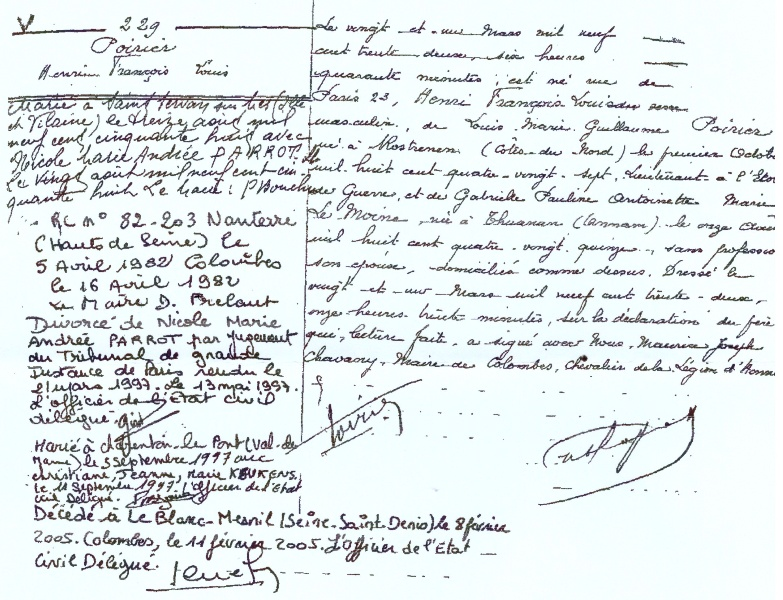 229
Poirier
Henri François Louis
Marié à Saint Servan sur Mer (Ille
et Vilaine) le treize août mil
neuf cent cinquante huit avec
Nicole Marie Andrée PARROT.
Le vingt août mil neuf cent cin
quante huit Le Maire :
RC n° 82-203 Nanterre
(Hauts de Seine) le
5 Avril 1982 Colombes
le 16 Avril 1982
Le Maire D. Frelaut
Divorcé de Nicole Marie
Andrée PARROT par jugement
du Tribunal de grande
Instance de Paris rendu le
21 mars 1997. Le 13 mai 1997.
L'officier de l'Etat civil
délégué.
Marié à Charenton-le-Pont (Val-de-
Marne) le 5 septembre 1997 avec
Christiane, Jeanne, Marie KEUKENS,
le 11 Septembre 1997. L'Officier de l'Etat
civil Délégué.
Décédé à Le Blanc-Mesnil (Seine-Saint-Denis) le 8 février
2005. Colombes, le 11 février 2005. L'Officier de l'Etat
Civil Délégué.
Le vingt et un Mars mil neuf
cent trente deux, six heures
quarante minutes, est né rue de
Paris 23, Henri François Louis du sexe
masculin, de Louis Marie Guillaume Poirier
né à Rostrenen (Côtes du Nord) le premier Octob
mil huit cent quatre-vingt-sept, Lieutenant à l'
de Guerre, et de Gabrielle Pauline Antoinette Marie
Le Moine, née à Thuanan (Annam) le onze
mil huit cent quatre-vingt quinze, sans professio
son épouse, domiciliés comme dessus. Dressé le
vingt et un Mars mil neuf cent trente-deux,
onze heures trente minutes, sur la déclaration du père
qui, lecture faite, a signé avec Nous, Maurice Joseph
Chavany, Maire de Colombes, Chevalier de la Légion d'Honne
Poirier